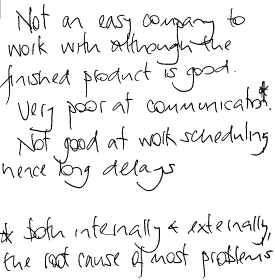 Not an easy company to
work with although the
finished product is good.
Very poor at communicatⁿ*.
Not good at work scheduling
hence long delays
* both internally & externally,
the root cause of most problems